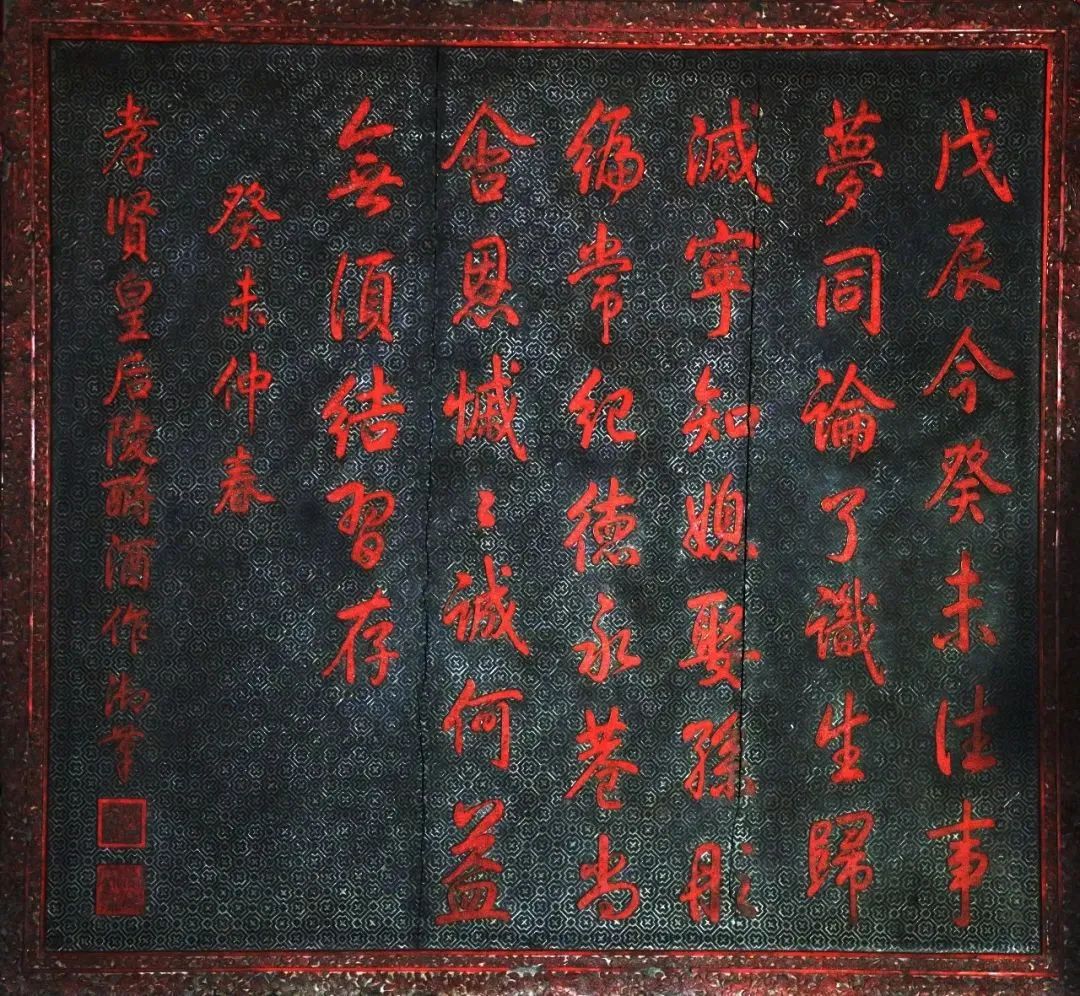 戊辰今癸未往事
夢同論了識生歸
滅寧知媳娶孫彤
編常紀德永巷尚
含恩慽〻誠何益
無須結習存
癸未仲春
孝賢皇后陵酹酒作 御筆